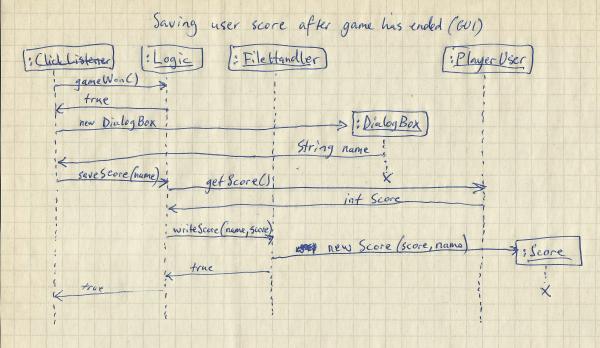 Saving user score after game has ended (GUI)
:ClickListener :Logic :FileHandler :PlayerUser
gameWon()
true
new DialogBox :DialogBox
String name
saveScore(name) getScore()
int Score
writeScore(name,score)
new Score (score,name) :Score
true
true